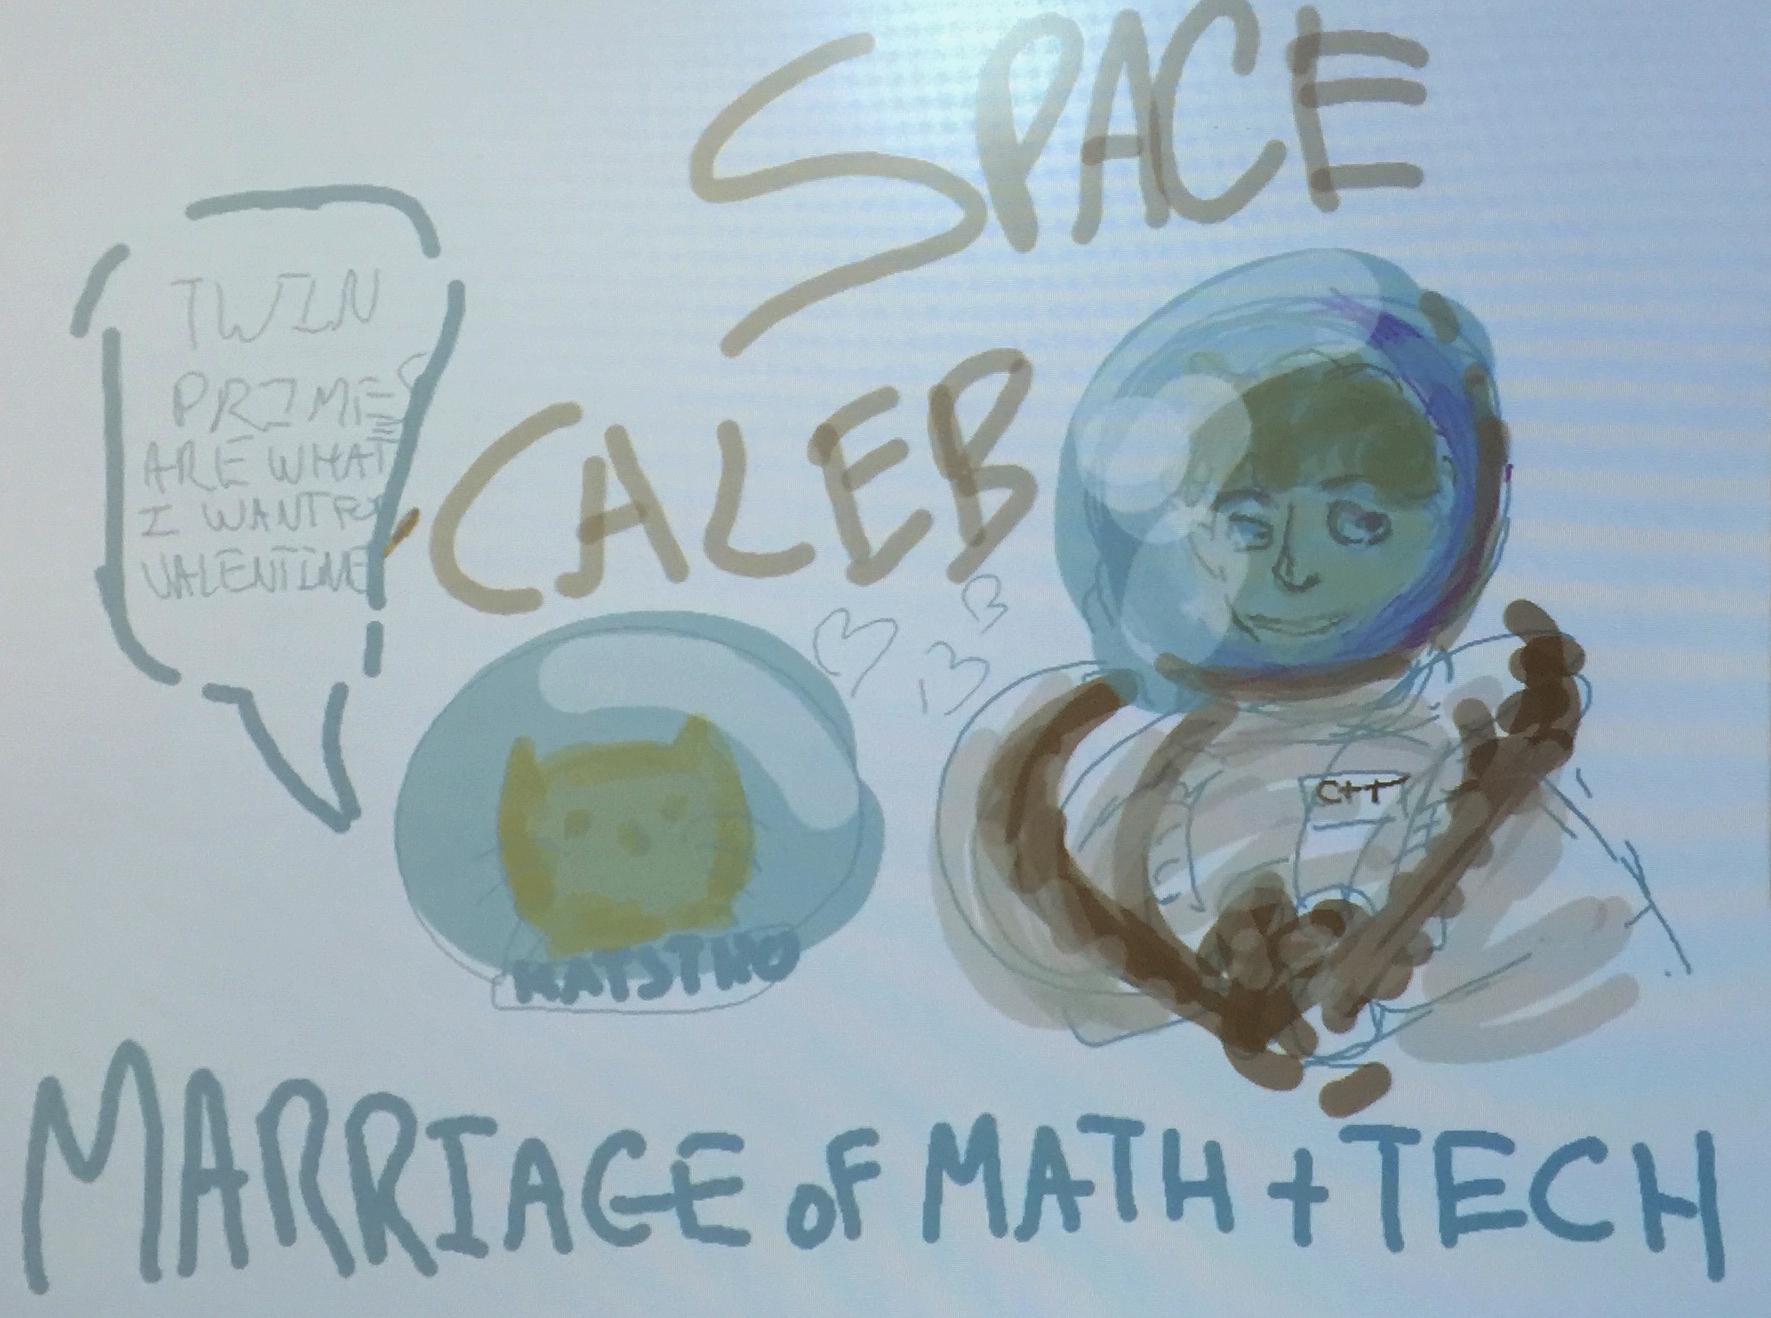 SPACE
CALEB
TWIN
PRIMES
ARE WHAT
I WANT FOR
VALENTINE
C++
MARRIAGE OF MATH + TECH